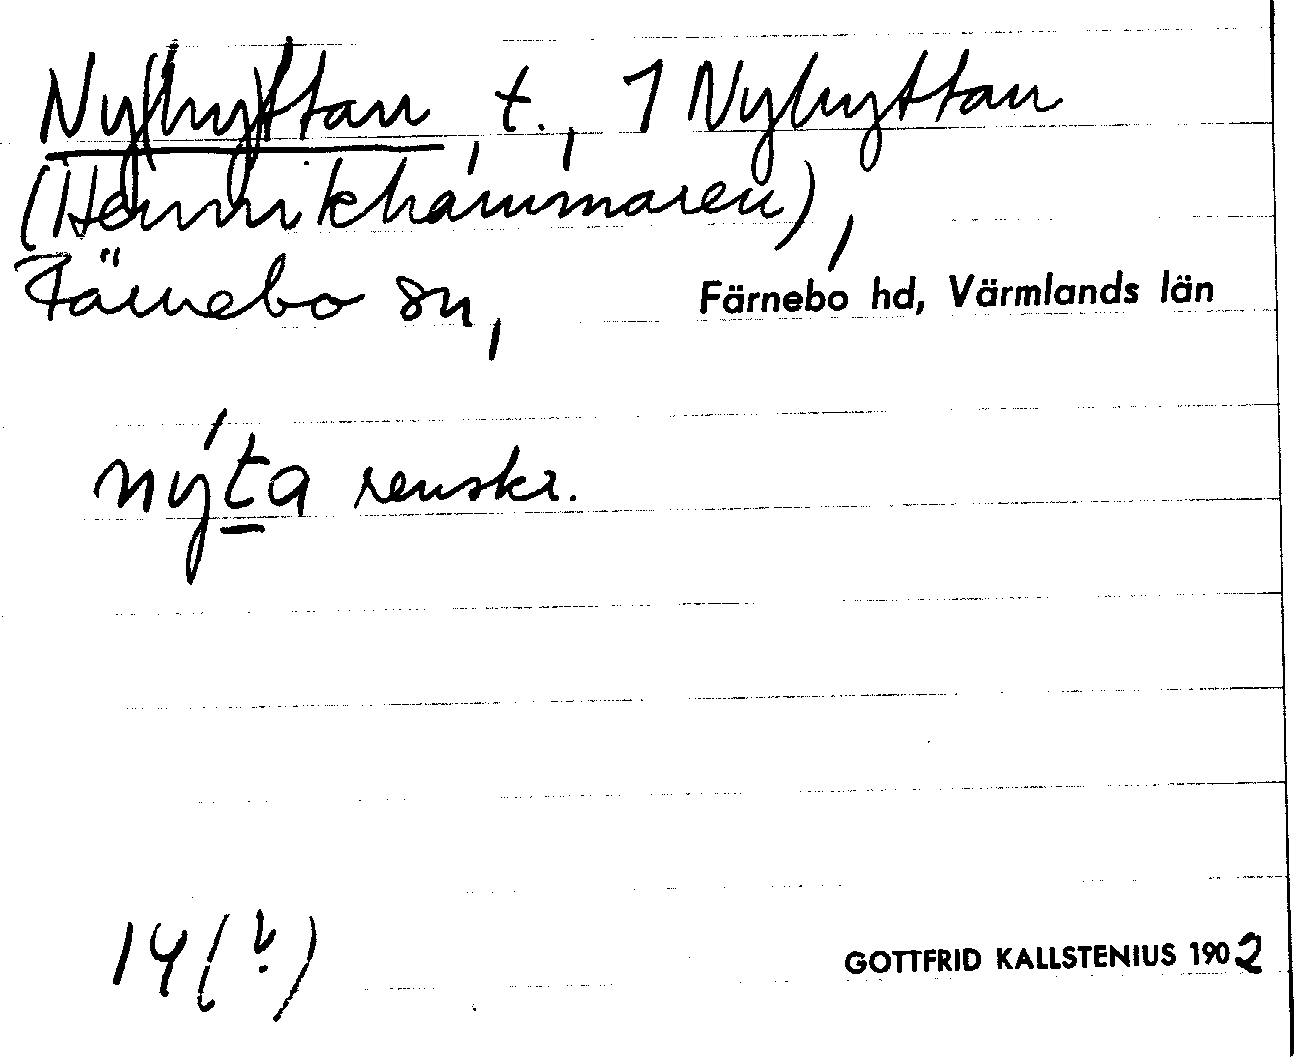 Ny(hy)ttan, t., 1 Nyhyttan
(Henrikhammaren),
Färnebo sn, Färnebo hd, Värmlands län
nýta renskr.
14(?)
GOTTFRID KALLSTENIUS 1902